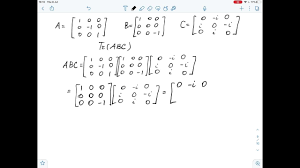 A= [1 0 0; 0 -1 0; 0 0 1] B= [1 0 0; 0 0 0; 0 0 -1] C= [0 -i 0; i 0 -i; 0 i 0]
Tr(ABC)
ABC= [1 0 0; 0 -1 0; 0 0 1] [1 0 0; 0 0 0; 0 0 -1] [0 -i 0; i 0 -i; 0 i 0]
= [1 0 0; 0 0 0; 0 0 -1] [0 -i 0; i 0 -i; 0 i 0] = [0 -i 0